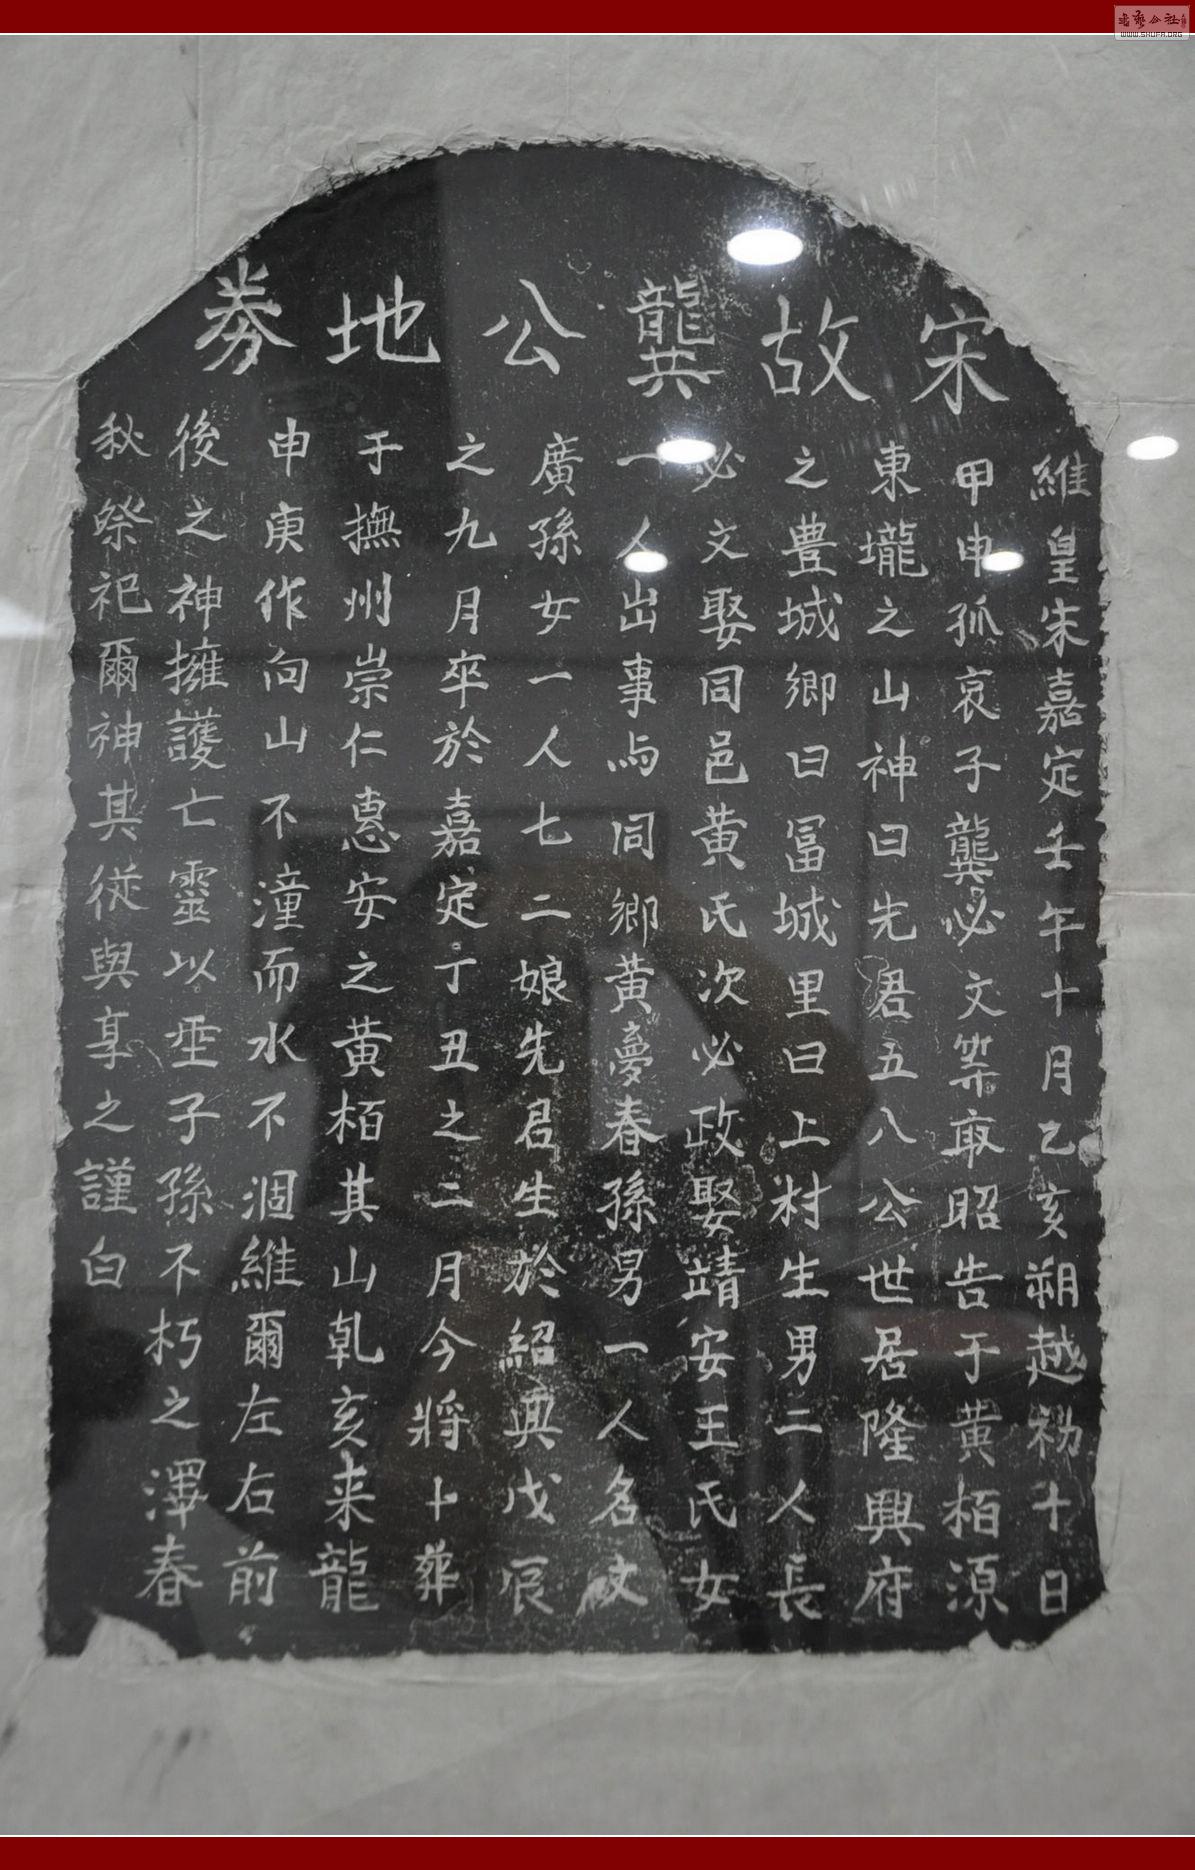 宋故龔公地券
維皇宋嘉定壬午十月乙亥朔越初十日
甲申孤哀子龔必文等敢昭告于黃栢源
東壠之山神曰先君五八公世居隆興府
之豊城鄉曰冨城里曰上村生男二人長
必文娶同邑黃氏次必政娶靖安王氏女
一人出事与同鄉黃夢春孫男一人名文
廣孫女一人七二娘先君生於紹興戊辰
之九月卒於嘉定丁丑之二月今將卜葬
于撫州崇仁惠安之黃栢其山乹亥来龍
申庚作向山不潼而水不涸維爾左右前
後之神擁護亡靈以垂子孫不朽之澤春
秋祭祀爾神其從與享之謹白
書法公社
WWW.SHUFA.ORG